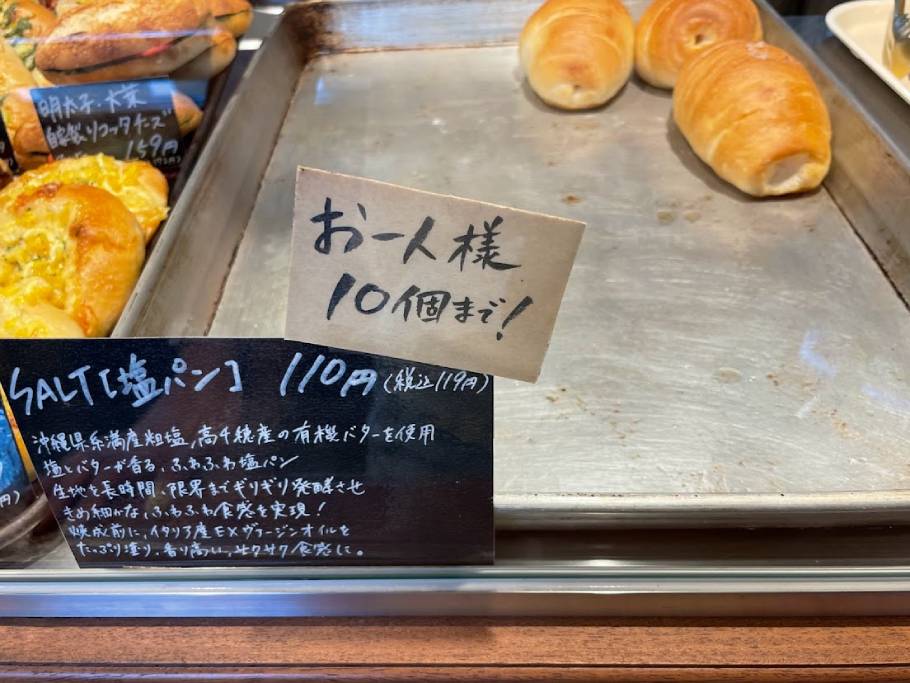 明太子・大葉
自家製リコッタチーズ
159円
お一人様
10個まで!
SALT[塩パン] 110円(税込119円)
沖縄県糸満産粗塩,高千穂産の有機バターを使用
塩とバターが香る、ふわふわ塩パン
生地を長時間、限界までギリギリ発酵させ
きめ細かな、ふわふわ食感を実現!
焼成前に、イタリア産EXヴァージンオイルを
たっぷり塗り、香り高い、サクサク食感に。
円)